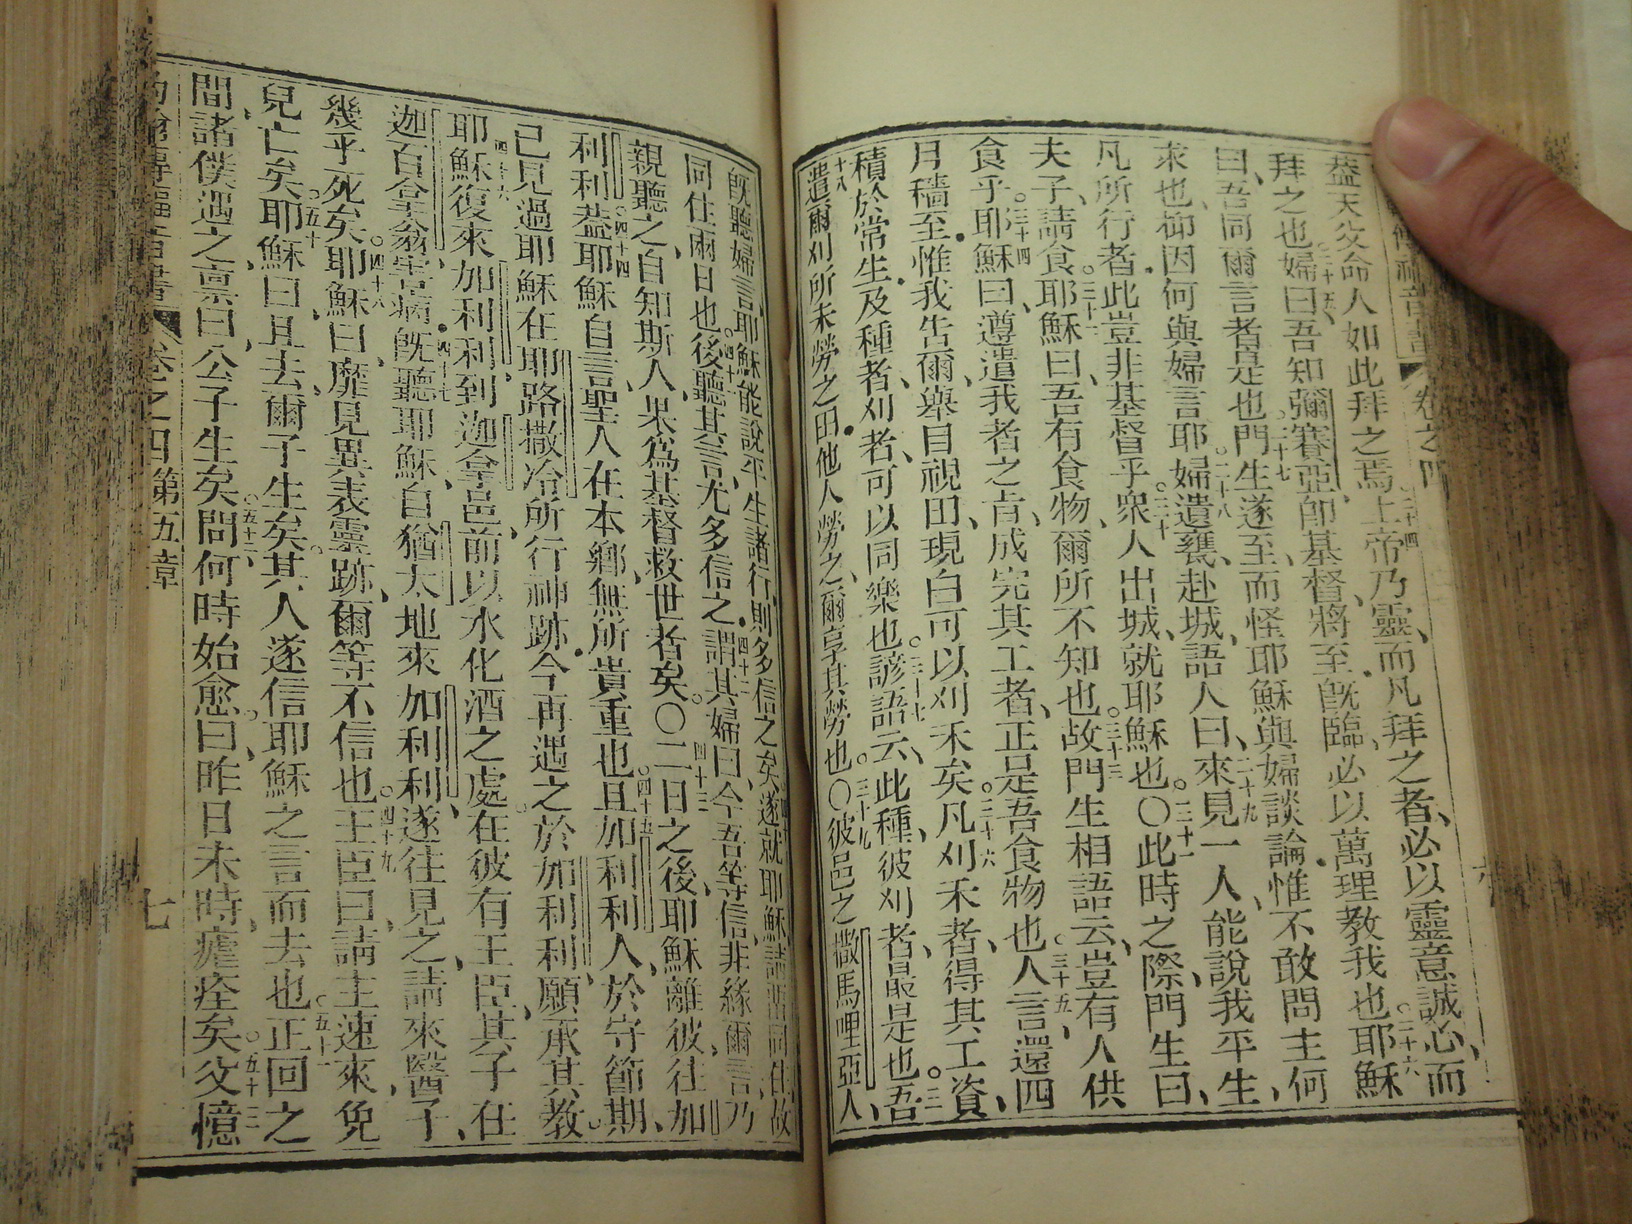 卷之四
蓋天父命人如此拜之焉二十四上帝乃靈、而凡拜之者、必以靈意誠心、而
拜之也二十五婦曰吾知彌賽亞、即基督、將至、旣臨、必以萬理教我也二十六耶穌
曰、吾同爾言者是也二十七門生遂至、而怪耶穌與婦談論惟不敢問主何
求也、抑因何與婦言耶二十八婦遺甕、赴城、語人曰、二十九來見一人、能說我平生、
凡所行者此豈非基督乎三十衆人出城、就耶穌也〇三十一此時之際、門生曰、
夫子、請食三十二耶穌曰、吾有食物、爾所不知也三十三故門生相語云、豈有人供
食乎三十四耶穌曰、遵遣我者之旨、成完其工者、正是吾食物也三十五人言還四
月穡至、惟我告爾、舉目視田、現白可以刈禾矣三十六凡刈禾者、得其工資、
積於常生、及種者、刈者、可以同樂也三十七諺語云、此種、彼刈者、最是也三十八吾
遣爾刈所未勞之田他人勞之、爾享其勞也〇三十九彼邑之撒馬哩亞人、
旣聽婦言、耶穌能說平生諸行、則多信之矣四十遂就耶穌請西同住、故
同住兩日也四十一後聽其言尤多信之四十二謂其婦曰、今吾等信、非緣爾言、乃
親聽之、自知斯人、果爲基督救世者矣〇四十三二日之後、耶穌離彼、往加
利利四十四蓋耶穌自言聖人在本鄉、無所貴重也四十五且加利利人、於守節期、
已見過耶穌在耶路撒冷所行神跡今再遇之於加利利願承其教
四十六耶穌復來加利利到迦拿邑、前以水化酒之處、在彼有王臣、其子在
迦百拿翁害病四十七旣聽耶穌、自猶太地來加利利、遂往見之、請來醫子、
幾乎死矣四十八耶穌曰、靡見異表靈跡、爾等不信也四十九王臣曰、請主速來免
兒亡矣五十耶穌曰、且去、爾子生矣、其人遂信耶穌之言而去也五十一正回之
間、諸僕遇之、禀曰、公子生矣五十二問何時始愈、曰、昨日未時、瘧痊矣五十三父憶
約翰傳福音書 卷之四第五章 七